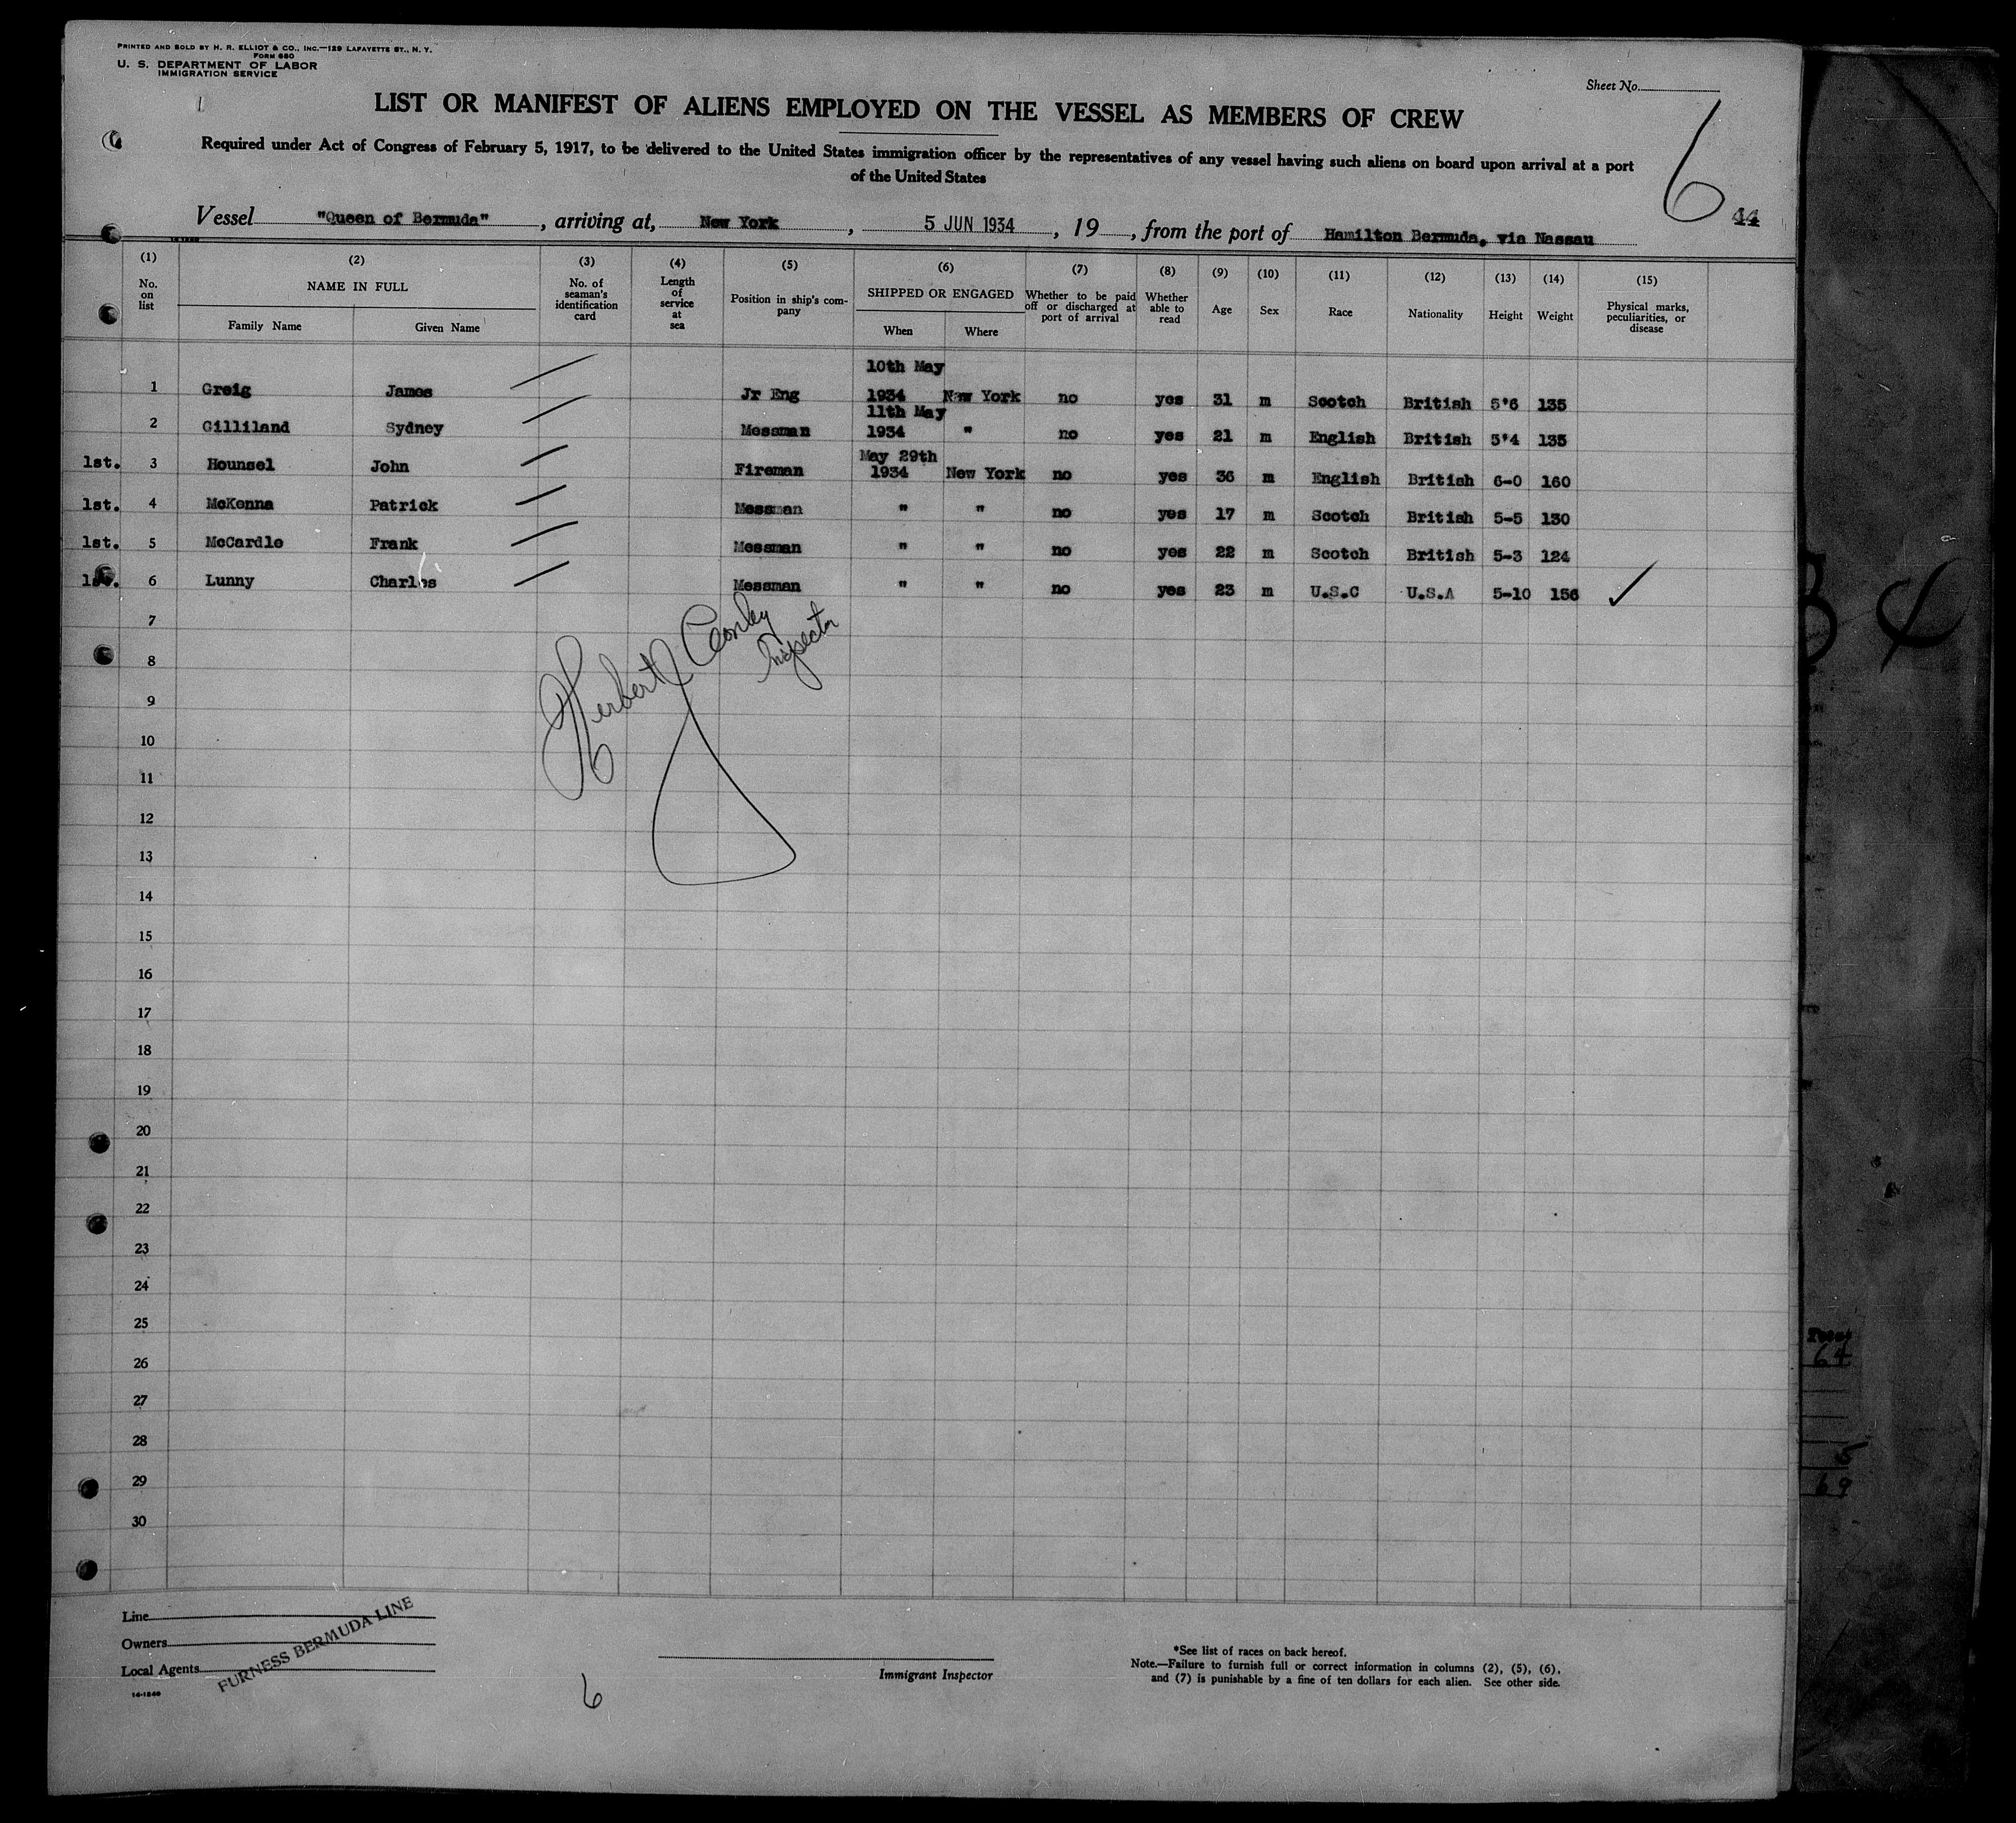 PRINTED AND SOLD BY H. R. ELLIOT & CO., INC.—129 LAFAYETTE ST., N. Y.
FORM 680
U. S. DEPARTMENT OF LABOR
IMMIGRATION SERVICE
Sheet No.
LIST OR MANIFEST OF ALIENS EMPLOYED ON THE VESSEL AS MEMBERS OF CREW
Required under Act of Congress of February 5, 1917, to be delivered to the United States immigration officer by the representatives of any vessel having such aliens on board upon arrival at a port
of the United States
6
44
Vessel "Queen of Bermuda", arriving at, New York, 5 JUN 1934, 19, from the port of Hamilton Bermuda, via Nassau
(1) No. on list (2) NAME IN FULL Family Name Given Name (3) No. of seaman's identification card (4) Length of service at sea (5) Position in ship's company (6) SHIPPED OR ENGAGED When Where (7) Whether to be paid off or discharged at port of arrival (8) Whether able to read (9) Age (10) Sex (11) Race (12) Nationality (13) Height (14) Weight (15) Physical marks, peculiarities, or disease
1 Greig James Jr Eng 10th May 1934 New York no yes 31 m Scotch British 5'6 135
2 Gilliland Sydney Messman 11th May 1934 " no yes 21 m English British 5'4 135
1st. 3 Hounsel John Fireman May 29th 1934 New York no yes 36 m English British 6-0 160
1st. 4 McKenna Patrick Messman " " no yes 17 m Scotch British 5-5 130
1st. 5 McCardle Frank Messman " " no yes 22 m Scotch British 5-3 124
1st. 6 Lunny Charles Messman " " no yes 23 m U.S.C U.S.A 5-10 156
7
Herbert J Conley
Inspector
8
9
10
11
12
13
14
15
16
17
18
19
20
21
22
23
24
25
26
27
28
29
30
64
5
69
Line
Owners
Local Agents
FURNESS BERMUDA LINE
16-1840
6
Immigrant Inspector
*See list of races on back hereof.
Note.—Failure to furnish full or correct information in columns (2), (5), (6),
and (7) is punishable by a fine of ten dollars for each alien. See other side.